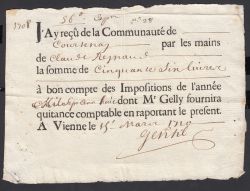 1708 56# n° 28
J'Ay reçû de la Communauté de
Courtenay par les mains
de Claude Reynaud
la somme de Cinquante Six livres
à bon compte des Impositions de l'année
dont Mr Gelly fournira
quitance comptable en raportant le present.
A Vienne le 15e Mars 1709